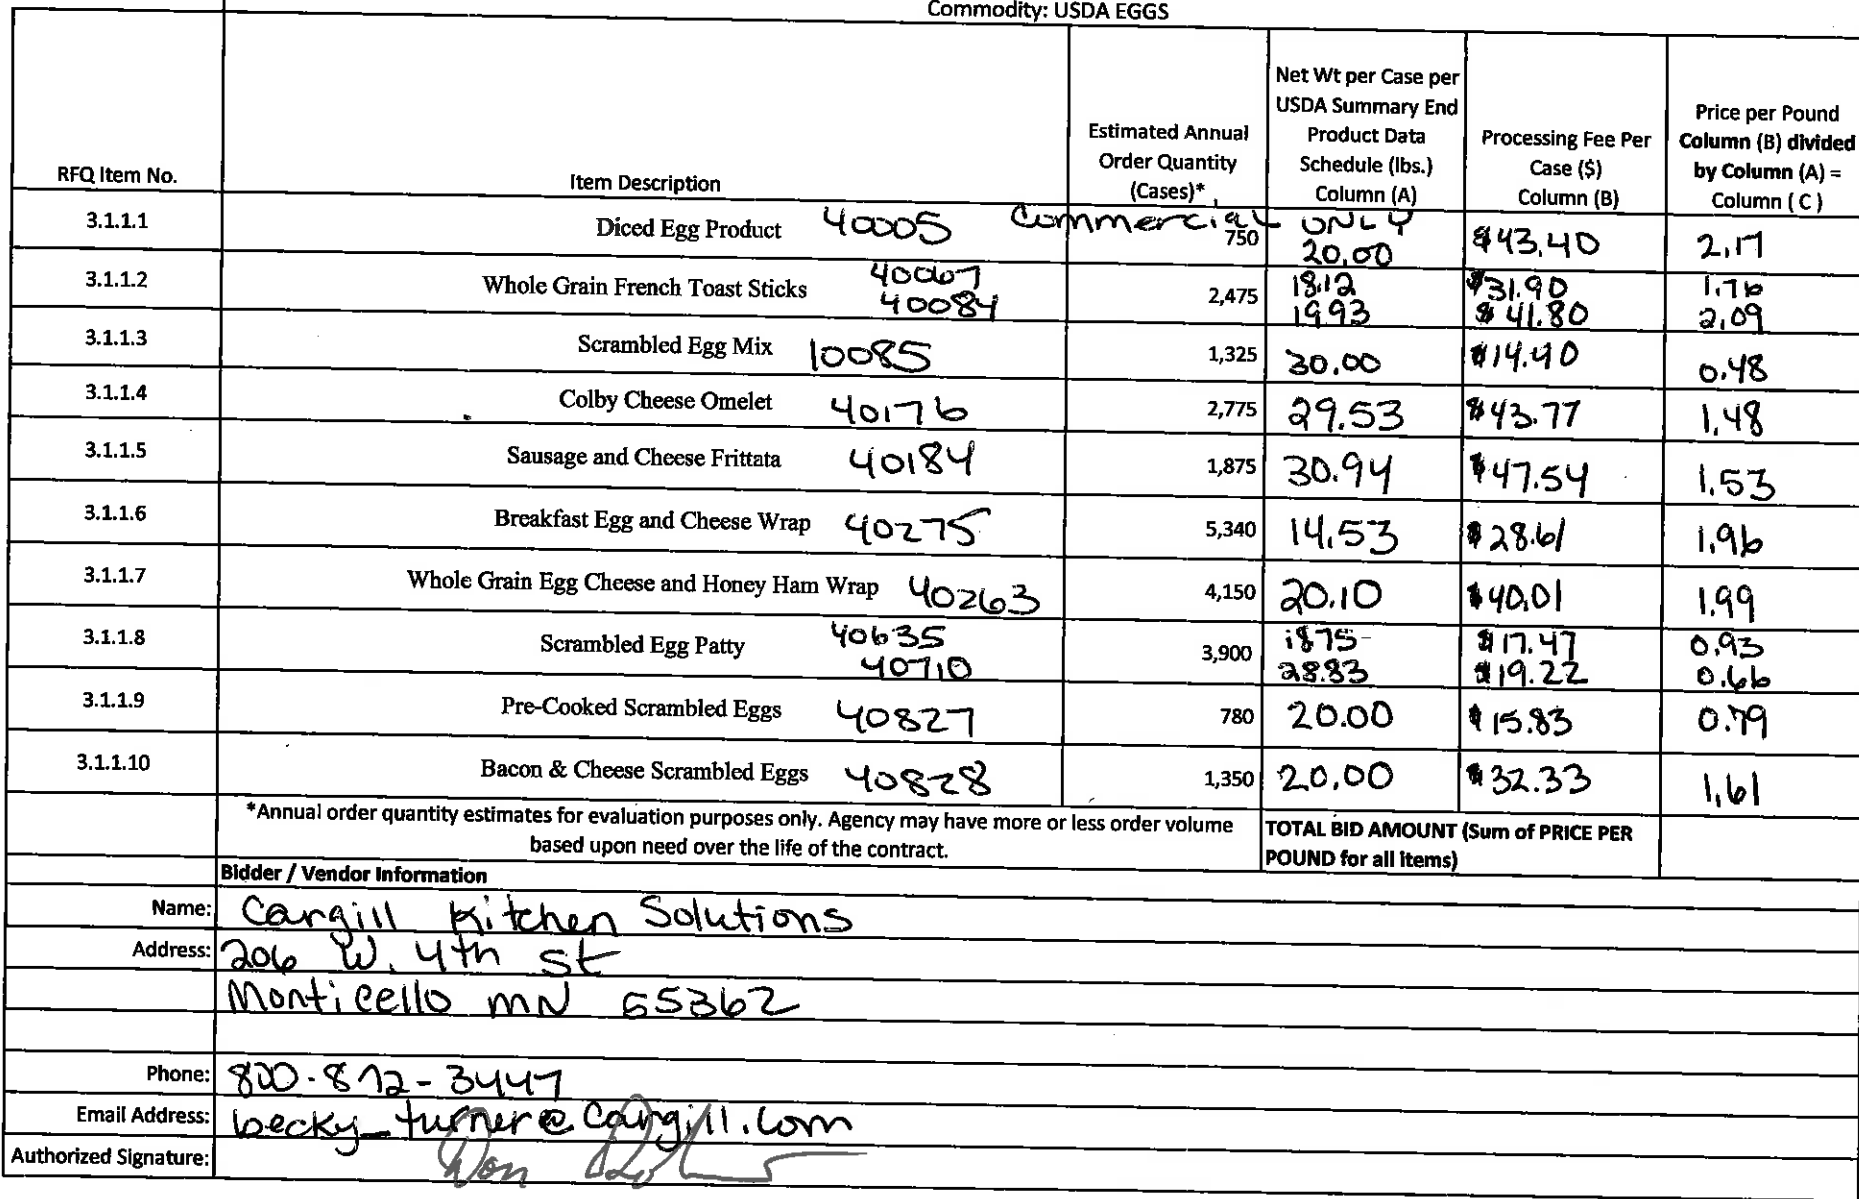 Commodity: USDA EGGS
RFQ Item No.
Item Description
Estimated Annual
Order Quantity
(Cases)*
Net Wt per Case per
USDA Summary End
Product Data
Schedule (lbs.)
Column (A)
Processing Fee Per
Case ($)
Column (B)
Price per Pound
Column (B) divided
by Column (A) =
Column ( C )
3.1.1.1 Diced Egg Product 40005 Commercial ONLY
750 20.00 $43.40 2.17
3.1.1.2 Whole Grain French Toast Sticks 40067 2,475 18.12 $31.90 1.76
40084 19.93 $41.80 2.09
3.1.1.3 Scrambled Egg Mix 10085 1,325 30.00 $14.40 0.48
3.1.1.4 Colby Cheese Omelet 40176 2,775 29.53 $43.77 1.48
3.1.1.5 Sausage and Cheese Frittata 40184 1,875 30.94 $47.54 1.53
3.1.1.6 Breakfast Egg and Cheese Wrap 40275 5,340 14.53 $28.61 1.96
3.1.1.7 Whole Grain Egg Cheese and Honey Ham Wrap 40263 4,150 20.10 $40.01 1.99
3.1.1.8 Scrambled Egg Patty 40635 3,900 18.75 $17.47 0.93
40710 28.83 $19.22 0.66
3.1.1.9 Pre-Cooked Scrambled Eggs 40827 780 20.00 $15.83 0.79
3.1.1.10 Bacon & Cheese Scrambled Eggs 40828 1,350 20.00 $32.33 1.61
*Annual order quantity estimates for evaluation purposes only. Agency may have more or less order volume
based upon need over the life of the contract.
TOTAL BID AMOUNT (Sum of PRICE PER
POUND for all items)
Bidder / Vendor Information
Name: Cargill Kitchen Solutions
Address: 206 W. 4th St
Monticello MN 55362
Phone: 800-872-3447
Email Address: becky_turner@cargill.com
Authorized Signature: Don